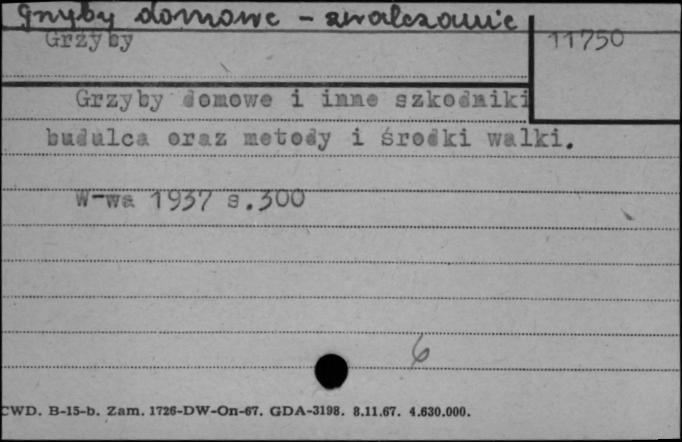 Grzyby domowe - zwalczanie
Grzyby
11750
Grzyby domowe i inne szkodniki
budulca oraz metody i środki walki.
W-wa 1937 s.300
6
CWD. B-15-b. Zam. 1726-DW-On-67. GDA-3198. 8.11.67. 4.630.000.